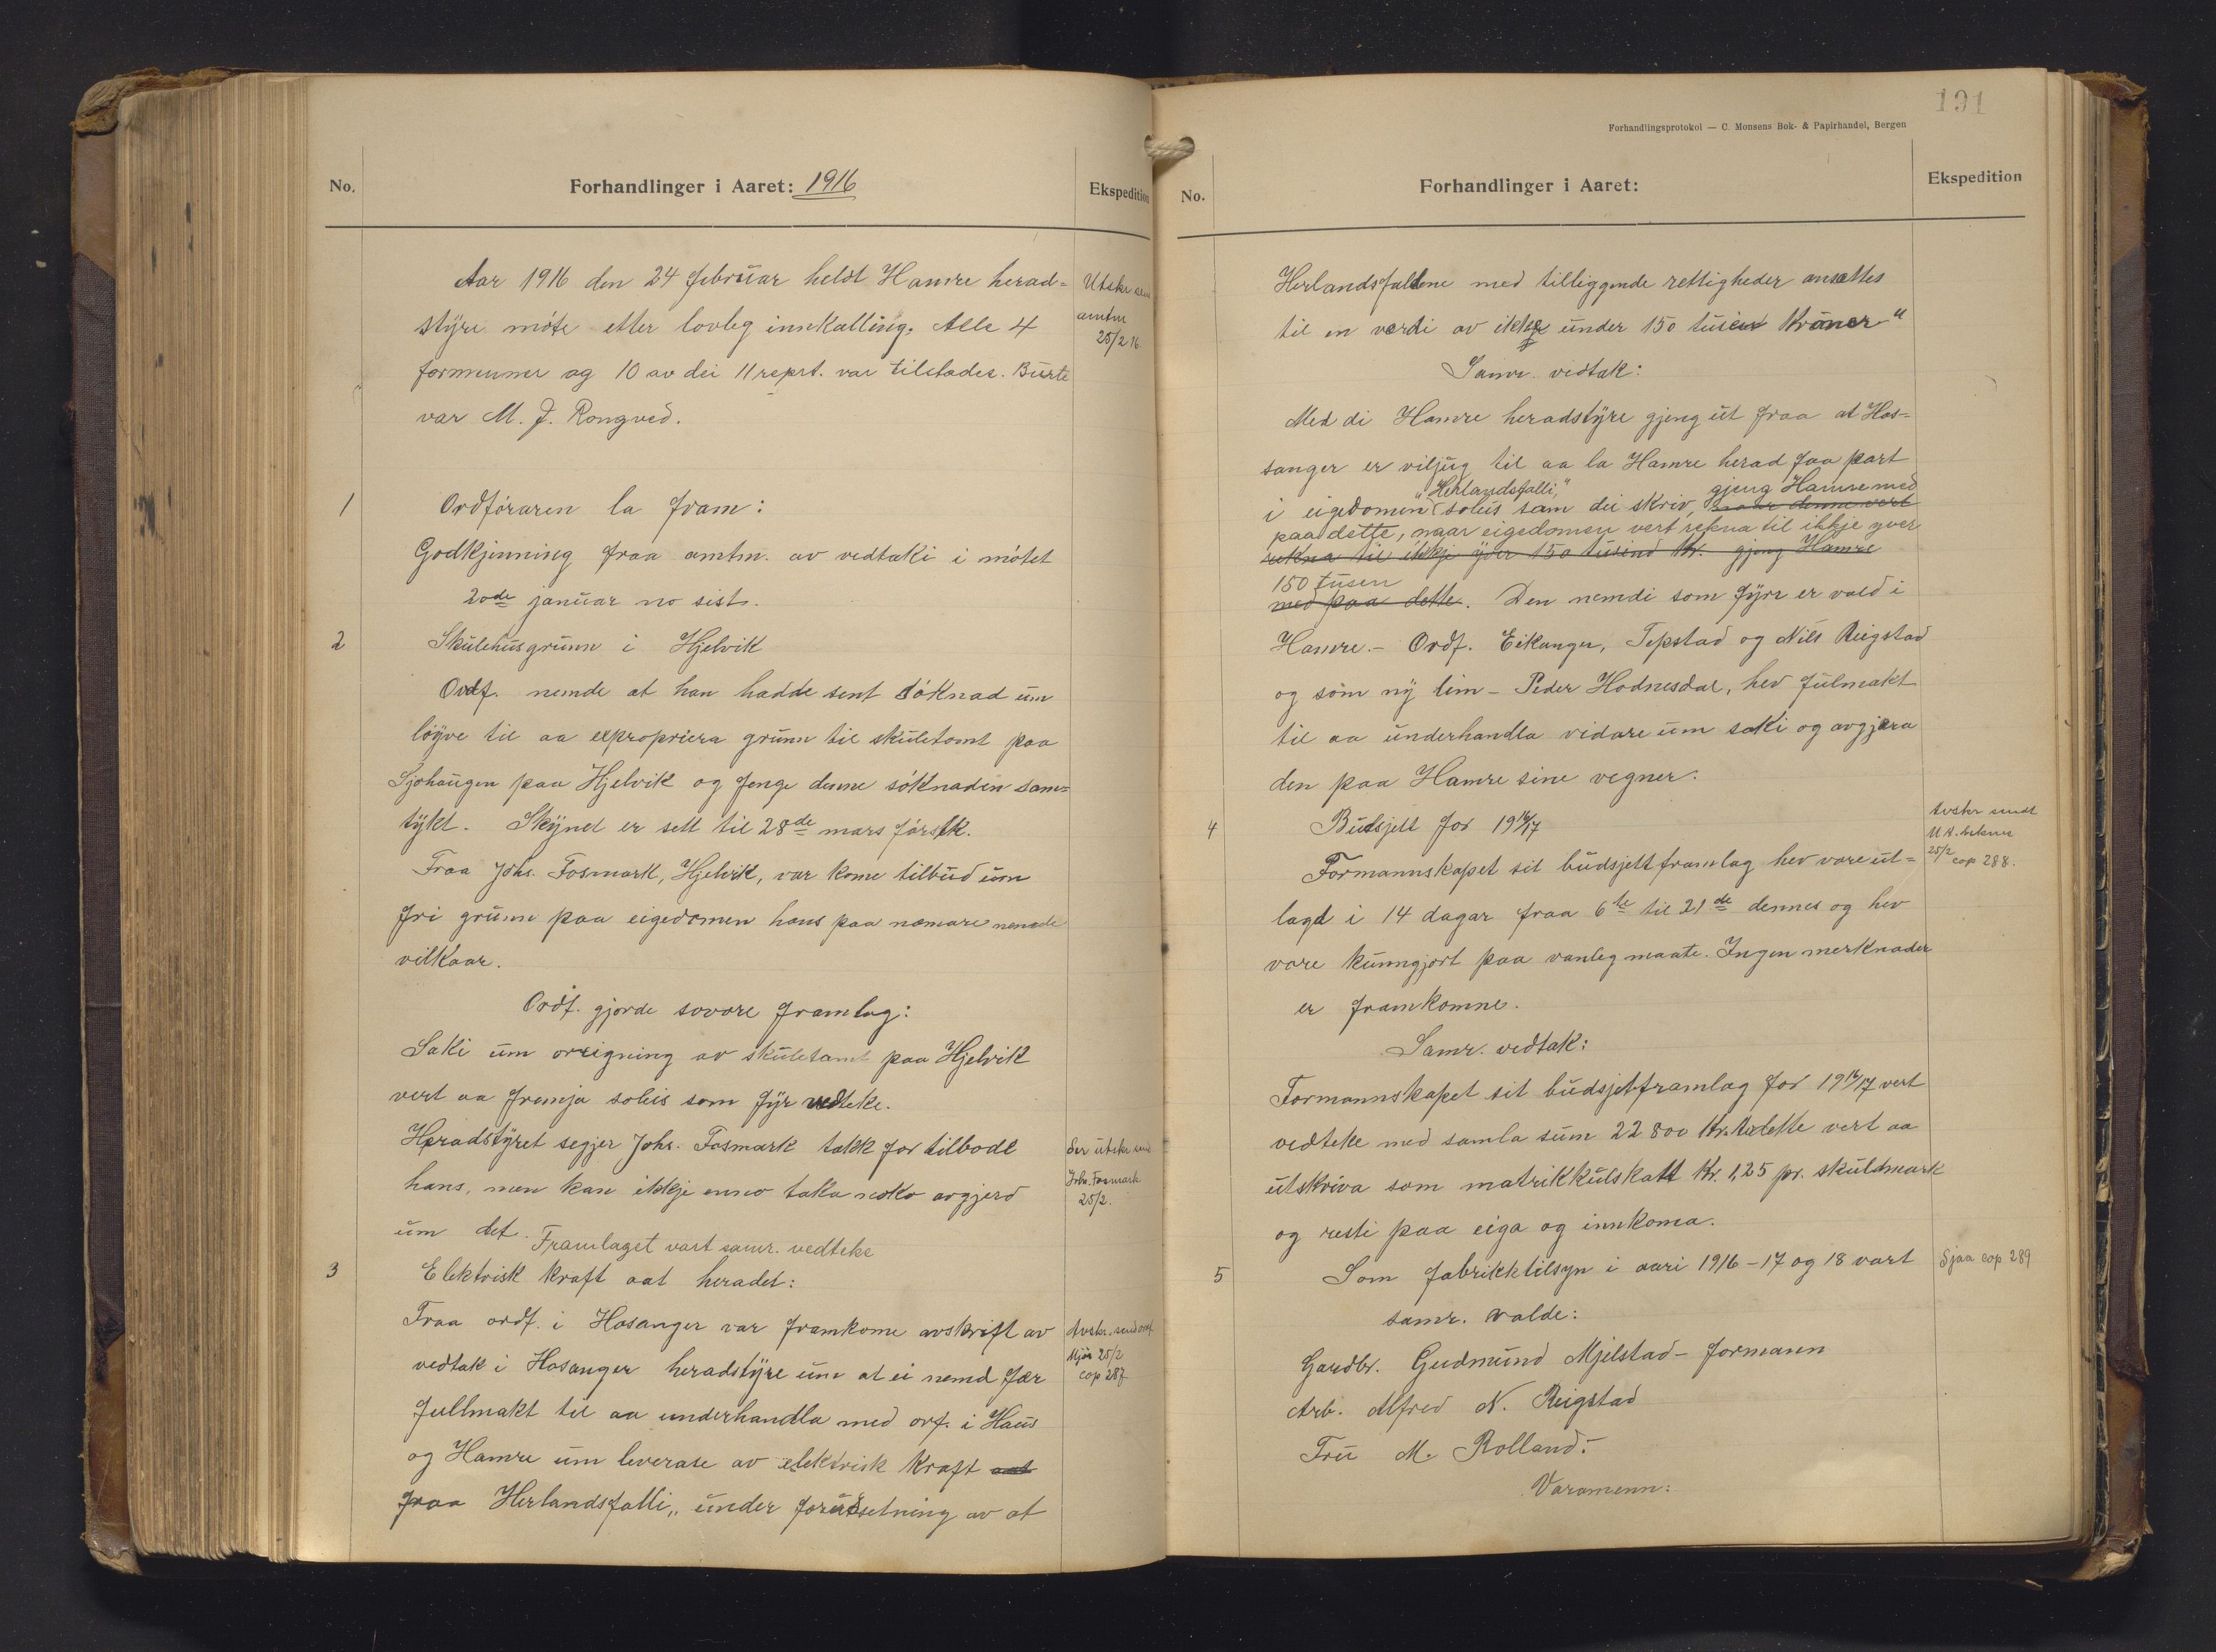 No.
Forhandlinger i Aaret: 1916
Ekspedition
Aar 1916 den 24 februar heldt Hamre herad=
styre møte etter lovleg innkalling. Alle 4
formenner og 10 av dei 11 reprt. var tilstades. Burte
var M. J. Rongved.
Utskr send
amtm
25/2 16.
1
Ordføraren la fram:
Godkjenning fraa amtm. av vedtaki i møtet
20de januar no sist.
2
Skulehusgrunn i Hjelvik
Ordf. nemde at han hadde sent søknad um
løyve til aa expropriera grunn til skuletomt paa
Sjøhaugen paa Hjelvik og fenge denne søknaden sam=
tykt. Skynet er sett til 28de mars førstk.
Fraa Johs. Fosmark, Hjelvik, var kome tilbud um
fri grunn paa eigedomen hans paa næmare nemde
vilkaar.
Ordf. gjorde sovore framlag:
Saki um oreigning av skuletomt paa Hjelvik
vert aa fremja soleis som fyr vedteke.
Heradstyret segjer Johs. Fosmark takk for tilbodt
hans, men kan ikkje enno taka noko avgjerd
um det. Framlaget vart samr. vedteke
Ser utskr send
Johs. Fosmark
25/2.
3
Elektrisk kraft aat heradet:
Fraa ordf. i Hosanger var framkome avskrift av
vedtak i Hosanger heradstyre um at ei nemd fær
fullmakt til aa underhandla med orf. i Haus
og Hamre um leverase av elektrisk kraft aat
fraa Herlandsfalli „under forutsetning av at
Avskr. send ordf.
Mjøs 25/2
cop 287
191
Forhandlingsprotokol — C. Monsens Bok- & Papirhandel, Bergen
No.
Forhandlinger i Aaret:
Ekspedition
Herlandsfaldene med tilliggende rettigheder ansættes
til en verdi av ikke under 150 tusen kroner"
Samr. vedtak:
Med di Hamre heradstyre gjeng ut fraa at Hos=
anger er viljug til aa la Hamre herad faa part
i eigedomen „Herlandsfalli," soleis som dei skriv, gjeng Hamre med
paa dette, naar eigedomen vert rekna til ikkje yver
rekna til ikkje yver 150 tusend kr. gjeng Hamre
150 tusen
med paa dette. Den nemdi som fyrr er vald i
Hamre.- Ordf. Eikanger, Tepstad og Nils Reigstad
og som ny lim - Peder Hodnesdal, hev fulmakt
til aa underhandla vidare um saki og avgjera
den paa Hamre sine vegner.
4
Budsjett for 1916/17
Formannskapet sit budsjettframlag hev vore ut=
lagd i 14 dagar fraa 6te til 21de dennes og hev
vore kunngjort paa vanleg maate. Ingen merknader
er framkomne.
Avskr sendt
25/2 cop 288.
Samr. vedtak:
Formannskapet sit budsjetframlag for 1916/17 vert
vedteke med samla sum 22 800 kr. Av dette vert aa
utskriva som matrikkulskatt kr. 1,25 pr. skuldmark
og resti paa eiga og innkoma.
5
Som fabrikktilsyn i aari 1916-17 og 18 vart
samr. valde:
Sjaa cop 289
Gardbr. Gudmund Mjelstad - formann
Arb. Alfred N. Reigstad
Fru M. Rolland.
Varamenn: